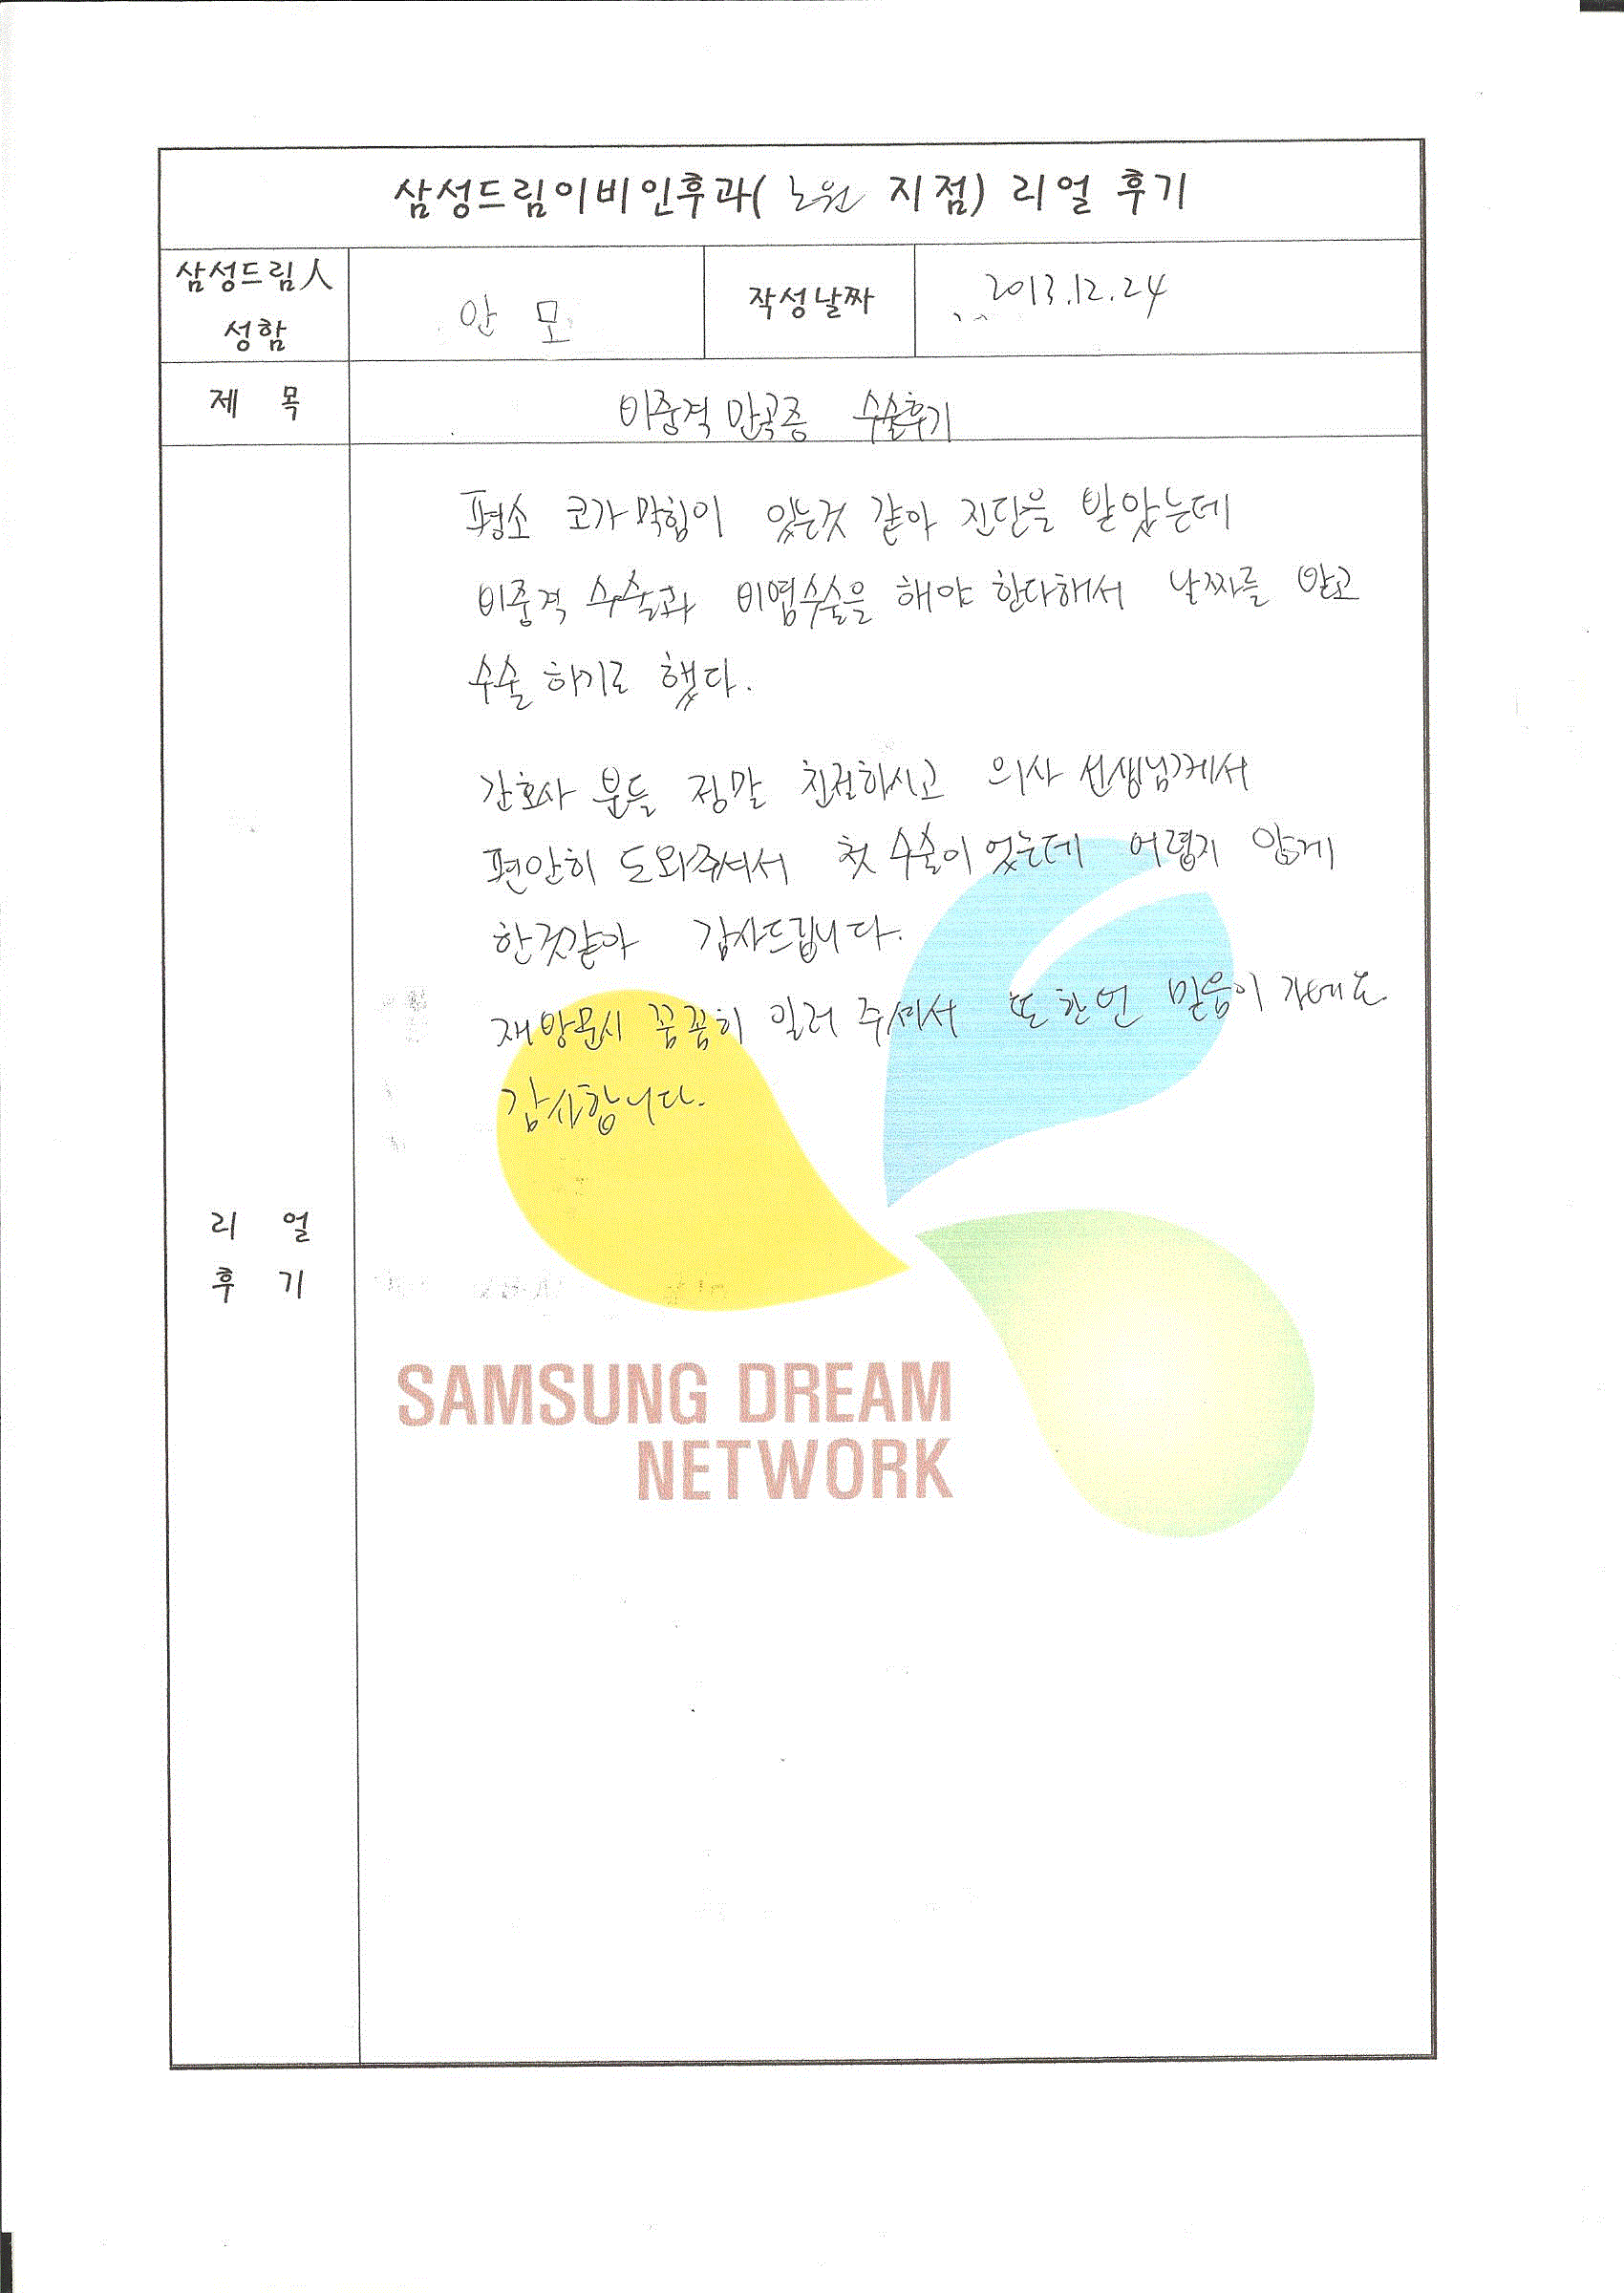 삼성드림이비인후과( 노원 지점) 리얼 후기
삼성드림人 성함
안 모
작성날짜
2013.12.24
제 목
비중격 만곡증 수술후기
리 얼
후 기
평소 코가 막힘이 있는것 같아 진단을 받았는데
비중격 수술과 비염수술을 해야 한다해서 날짜를 맞고
수술 하기로 했다.
간호사 분들 정말 친절하시고 의사 선생님께서
편안히 도와주셔서 첫 수술이었는데 어렵지 않게
한것같아 감사드립니다.
재방문시 꼼꼼히 일러 주셔서 또 한번 믿음이 가네요.
감사합니다.
SAMSUNG DREAM
NETWORK